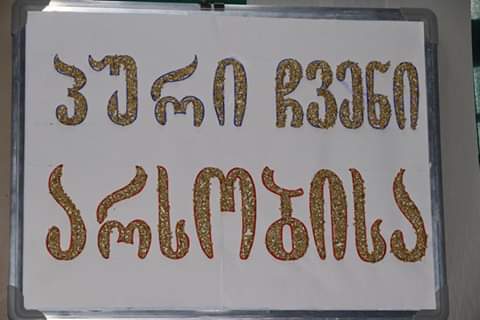 პური ჩვენი
არსობისა